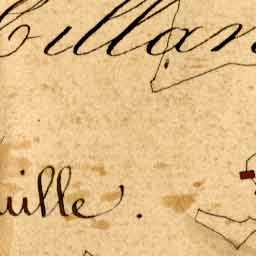 illan
uille.